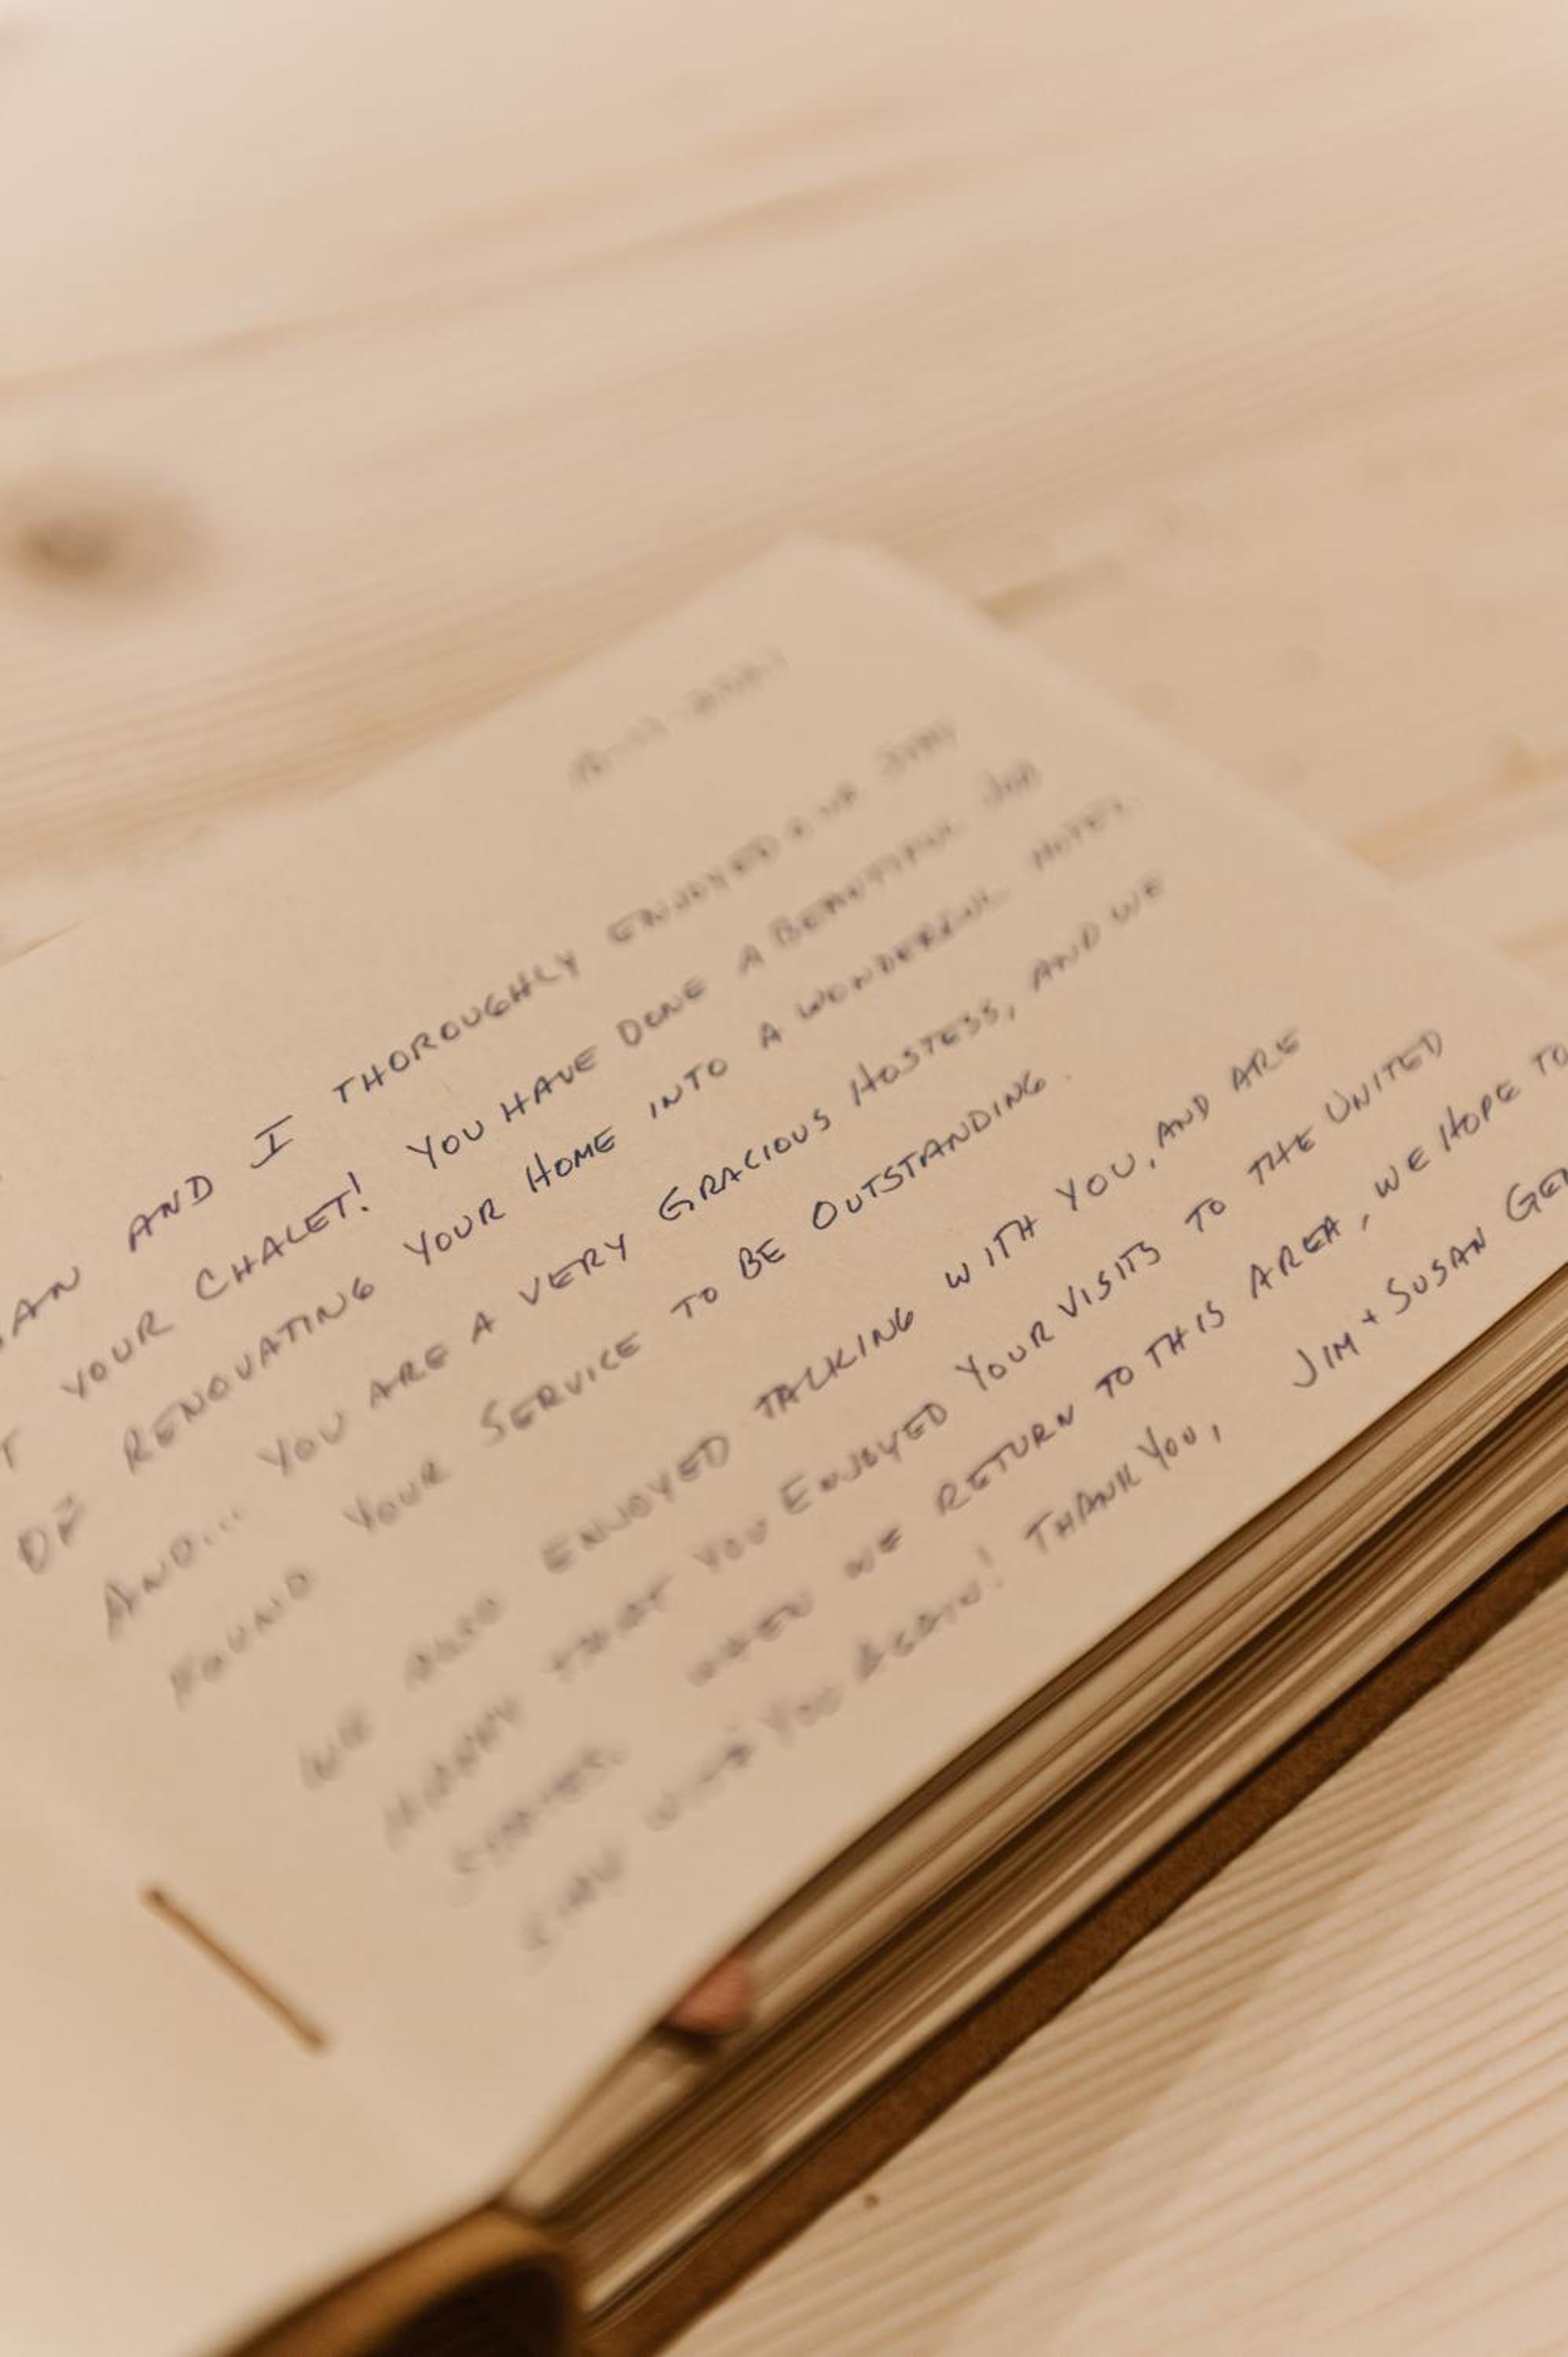 AND I THOROUGHLY ENJOYED OUR STAY
YOUR CHALET! YOU HAVE DONE A BEAUTIFUL JOB
OF RENOVATING YOUR HOME INTO A WONDERFUL HOTEL.
AND... YOU ARE A VERY GRACIOUS HOSTESS, AND WE
FOUND YOUR SERVICE TO BE OUTSTANDING.
WE ALSO ENJOYED TALKING WITH YOU, AND ARE
HAPPY THAT YOU ENJOYED YOUR VISITS TO THE UNITED
STATES. WHEN WE RETURN TO THIS AREA, WE HOPE TO
STAY WITH YOU AGAIN! THANK YOU, JIM + SUSAN